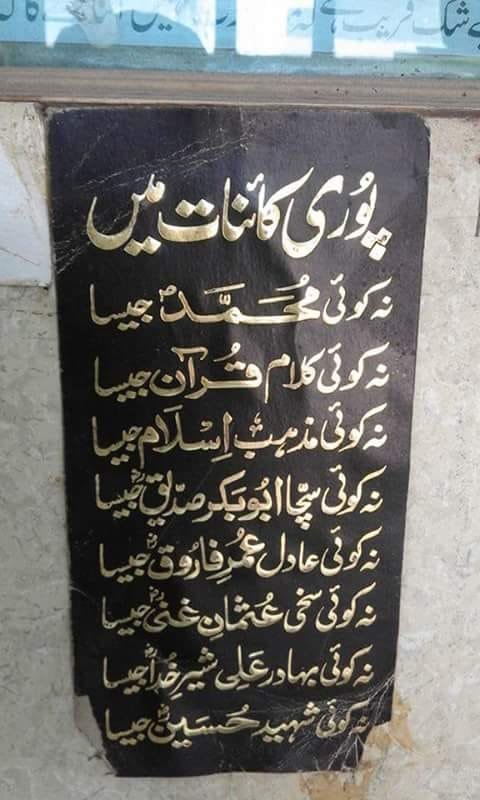 بے شک قریب ہے کہ
پوری کائنات میں
نہ کوئی محمدؐ جیسا
نہ کوئی کلام قرآن جیسا
نہ کوئی مذہب اسلام جیسا
نہ کوئی سچا ابوبکر صدیقؓ جیسا
نہ کوئی عادل عمرِ فاروقؓ جیسا
نہ کوئی سخی عثمانِ غنیؓ جیسا
نہ کوئی بہادر علی شیرِ خداؓ جیسا
نہ کوئی شہید حسینؓ جیسا